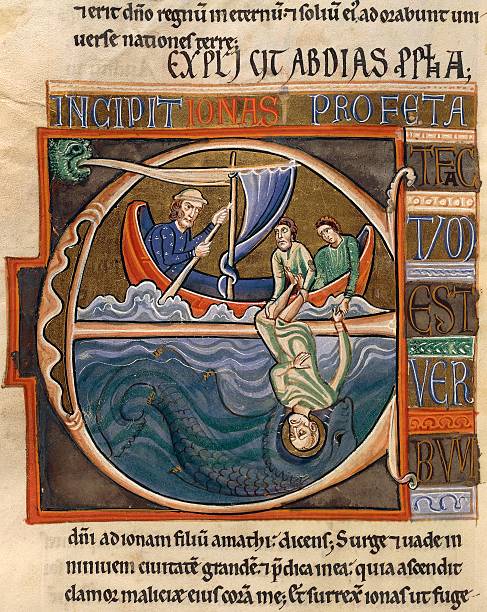 ⁊ erit dño regnũ in eternũ· ⁊ soliũ ei᷒ adorabunt uni
uerse nationes terrę;
EXPLICIT ABDIAS P̱PħA;
INCIPIT IONAS PROFETA
ET FAC
TU(M)
EST
VER
BUM
dñi ad ionam filiũ amathi· dicens; Surge ⁊ uade in
niniuem ciuitatẽ grandẽ· ⁊ p̱dica in ea· quia ascendit
clamor malicię eius corã me; Et surrex̃ ionas ut fuge